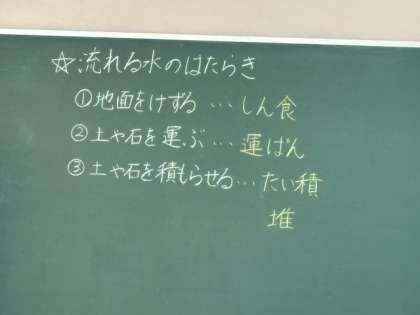 ☆流れる水のはたらき
①地面をけずる…しん食
②土や石を運ぶ…運ぱん
③土や石を積もらせる…たい積
堆